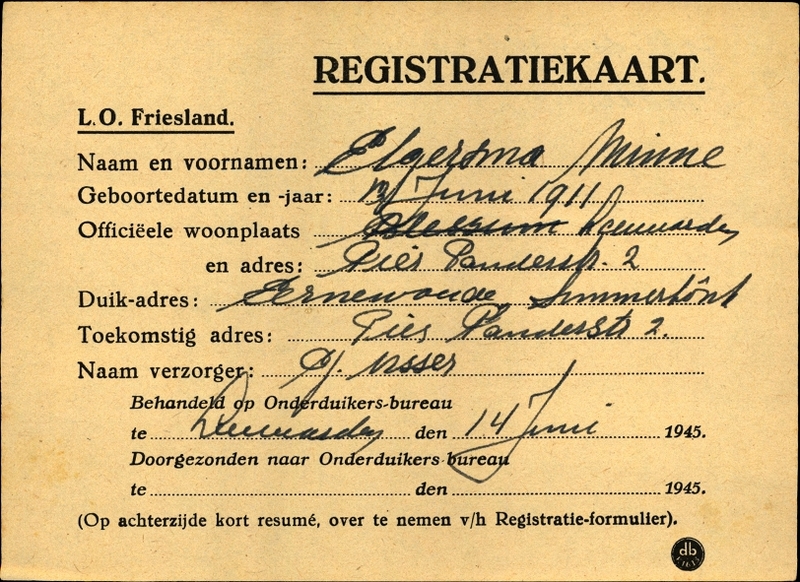 REGISTRATIEKAART.
L.O. Friesland.
Naam en voornamen: Elgersma Minne
Geboortedatum en -jaar: 13 Juni 1911
Officiëele woonplaats Blessum Leeuwarden
en adres: Pier Panderstr. 2
Duik-adres: Eernewoude
Toekomstig adres: Pier Panderstr 2.
Naam verzorger: Visser
Behandeld op Onderduikers-bureau
te Leeuwarden den 14 Juni 1945.
Doorgezonden naar Onderduikers-bureau
te den 1945.
(Op achterzijde kort resumé, over te nemen v/h Registratie-formulier).
db